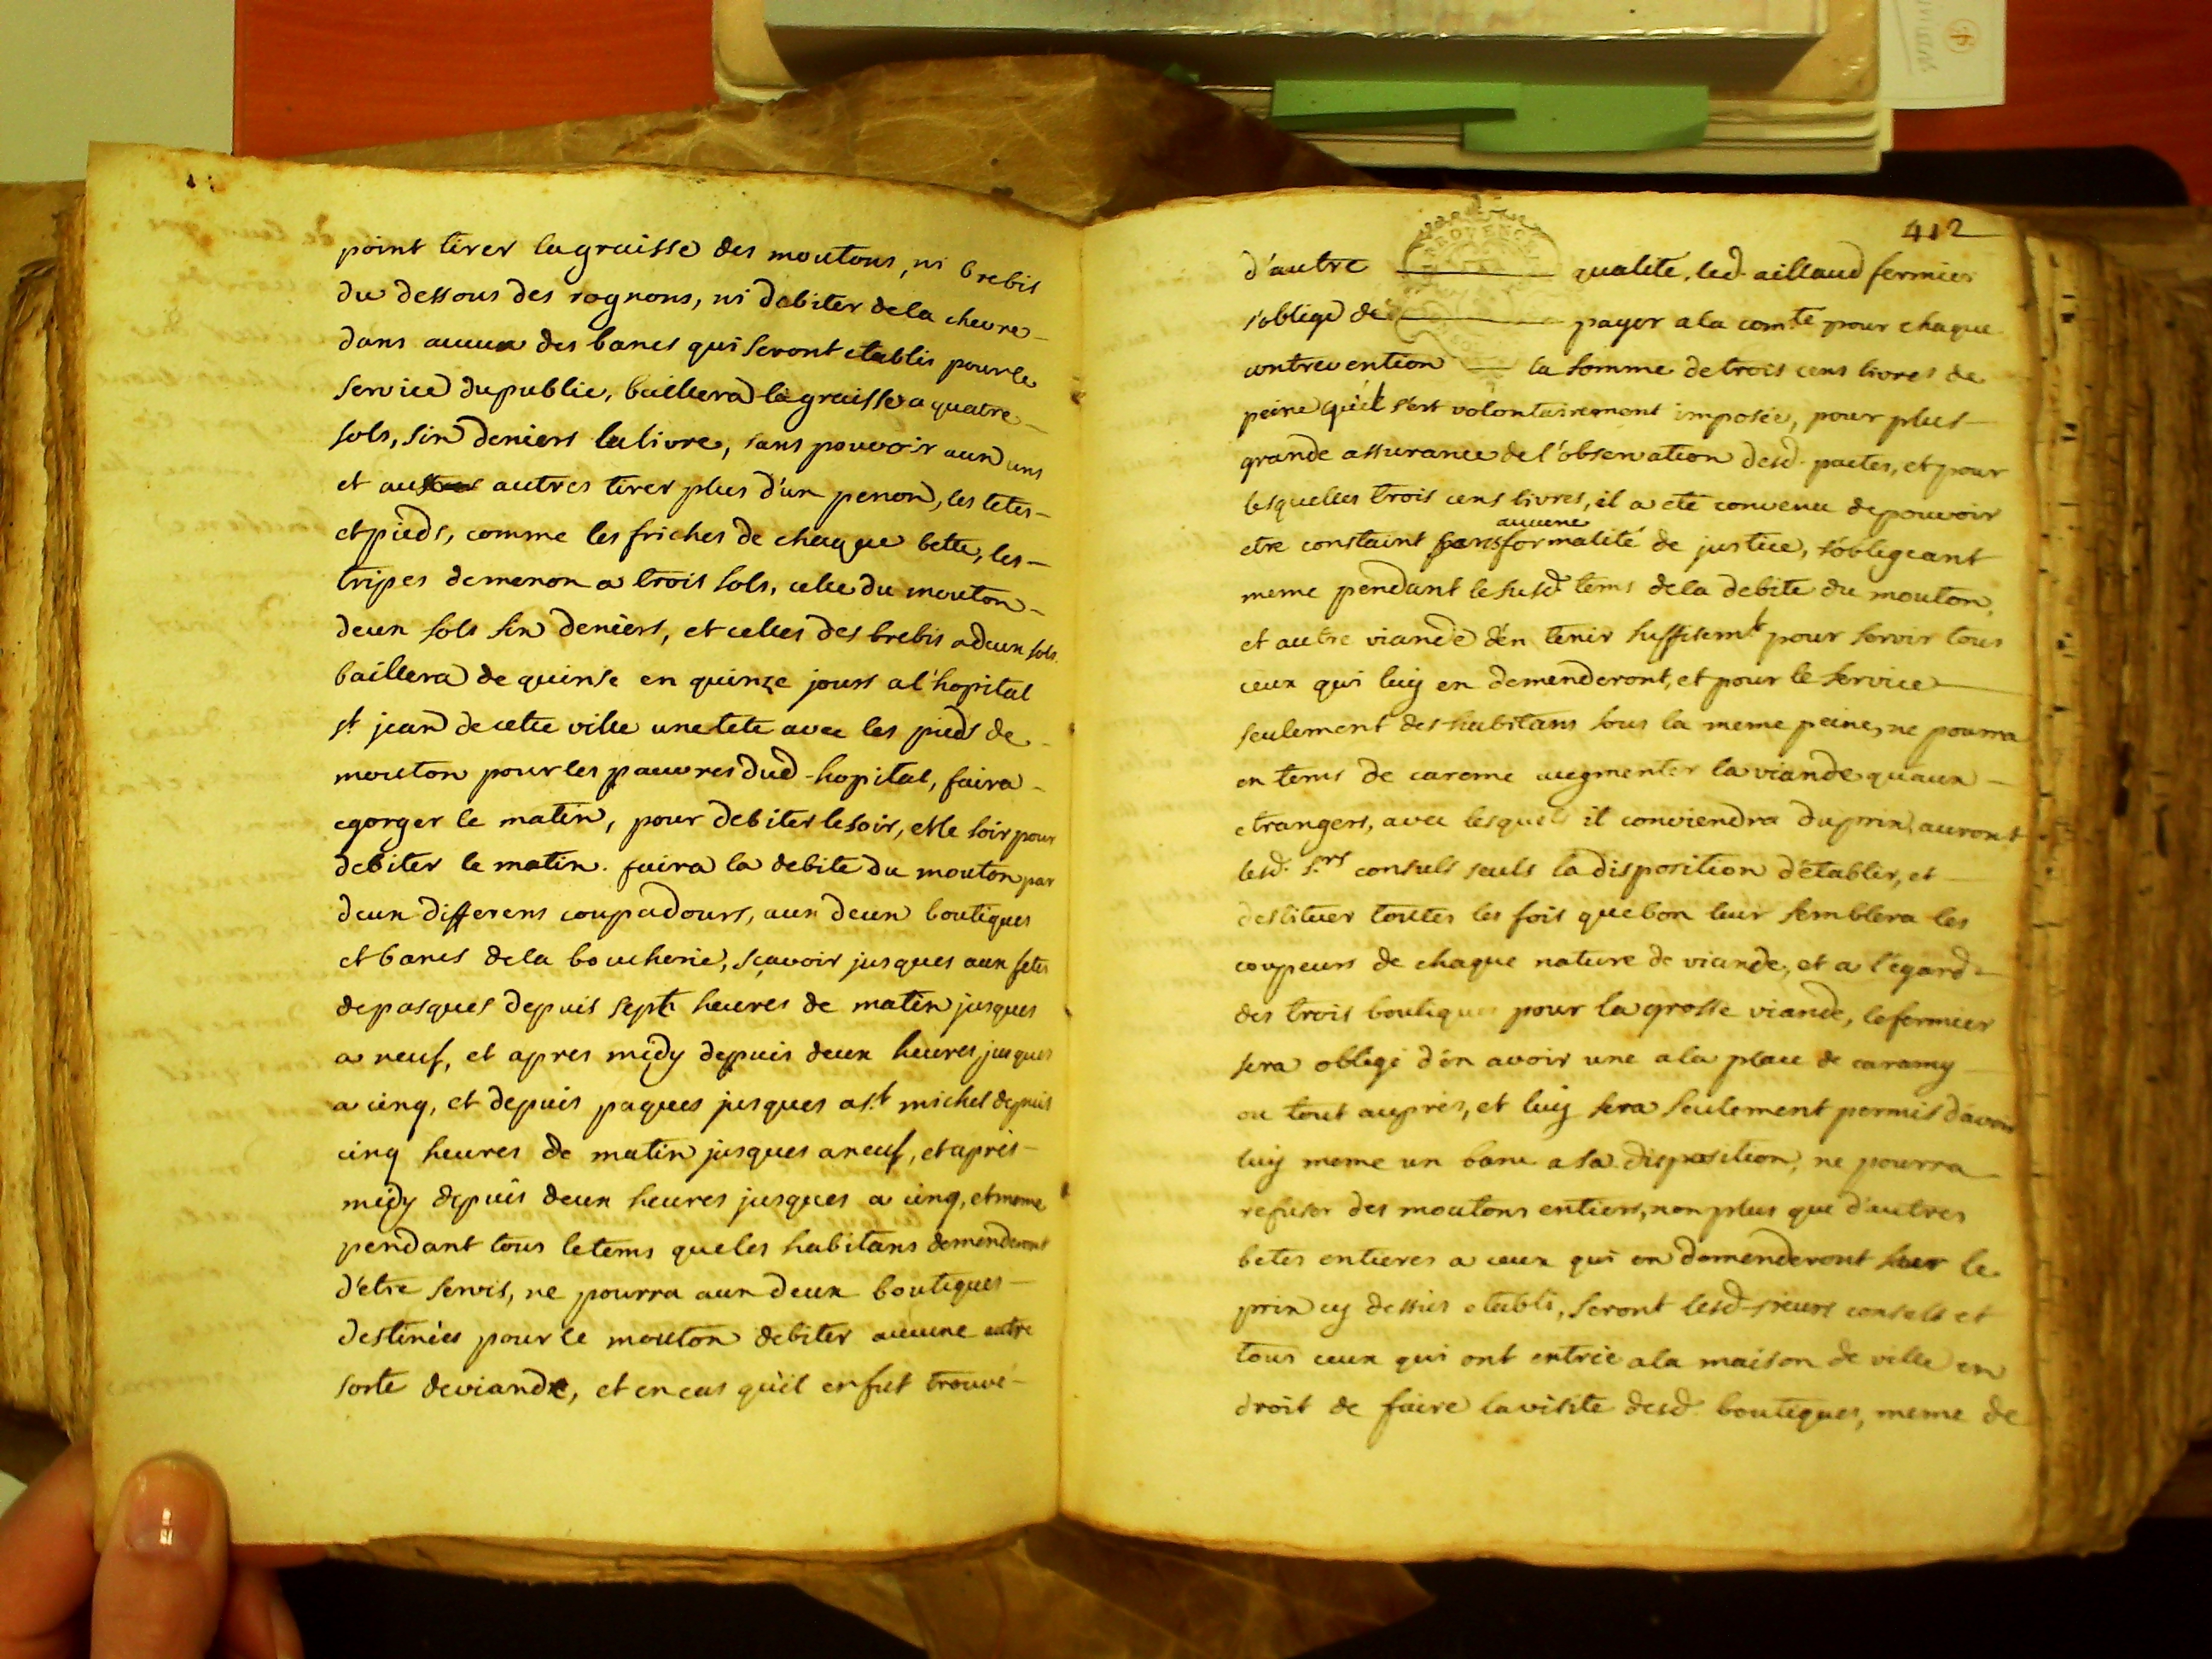 point tirer la graisse des moutons, ni brebis
du dessous des rognons, ni debiter dela chevre
dans aucun des bancs qui seront etablis pour le
service du public, baillera la graisse a quatre
sols, six deniers la livre, sans pouvoir aux uns
et aux autres tirer plus d'un penon, les tetes
et pieds, comme les friches de chaque bette, les
tripes de menon a trois sols, celle du mouton
deux sols six deniers, et celles des brebis a deux sols.
baillera de quinse en quinze jours a l'hopital
st jean de cette ville une tete avec les pieds de
mouton pour les pauvres dud. hopital, faira
egorger le matin, pour debiter le soir, et le soir pour
debiter le matin. faira la debite du mouton par
deux differens coupadours, aux deux boutiques
et bancs dela boucherie, sçavoir jusques aux fetes
de pasques depuis sept heures de matin jusques
a neuf, et apres midy depuis deux heures jusques
a cinq, et depuis paques jusques a st. michel depuis
cinq heures de matin jusques a neuf, et apres
midy depuis deux heures jusques a cinq, et meme
pendant tous le tems que les habitans demenderont
d'etre servis, ne pourra aux deux boutiques
destinées pour le mouton debiter aucune autre
sorte de viande, et en cas qu'il en fut trouvé
412
PROVENCE
d'autre qualité, led. aillaud fermier
s'oblige de payer a la comte pour chaque
contrevention la somme de trois cens livres de
peine qu'il s'est volontairement imposée, pour plus
grande assurance de l'observation desd. pactes, et pour
lesquelles trois cens livres, il a eté convenu de pouvoir
aucune
etre constaint sans formalité de justice, s'obligeant
meme pendant le susd. tems dela debite du mouton,
et autre viande d'en tenir suffisemt pour servir tous
ceux qui luy en demenderont, et pour le service
seulement des habitans sous la meme peine, ne pourra
en tems de careme augmenter la viande qu'aux
etrangers, avec lesquels il conviendra du prix, auront
lesd. srs consuls seuls la disposition d'établir, et
destituer toutes les fois que bon leur semblera les
coupeurs de chaque nature de viande, et a l'égard
des trois boutiques pour la grosse viande, le fermier
sera obligé d'en avoir une a la place de caramy
ou tout auprés, et luy sera seulement permis d'avoir
luy meme un banc a sa disposition, ne pourra
refuser des moutons entiers, non plus que d'autres
betes entieres a ceux qui en demenderont sur le
prix cy dessus etabli, seront lesd. sieurs consuls et
tous ceux qui ont entrée a la maison de ville en
droit de faire la visite desd. boutiques, meme de